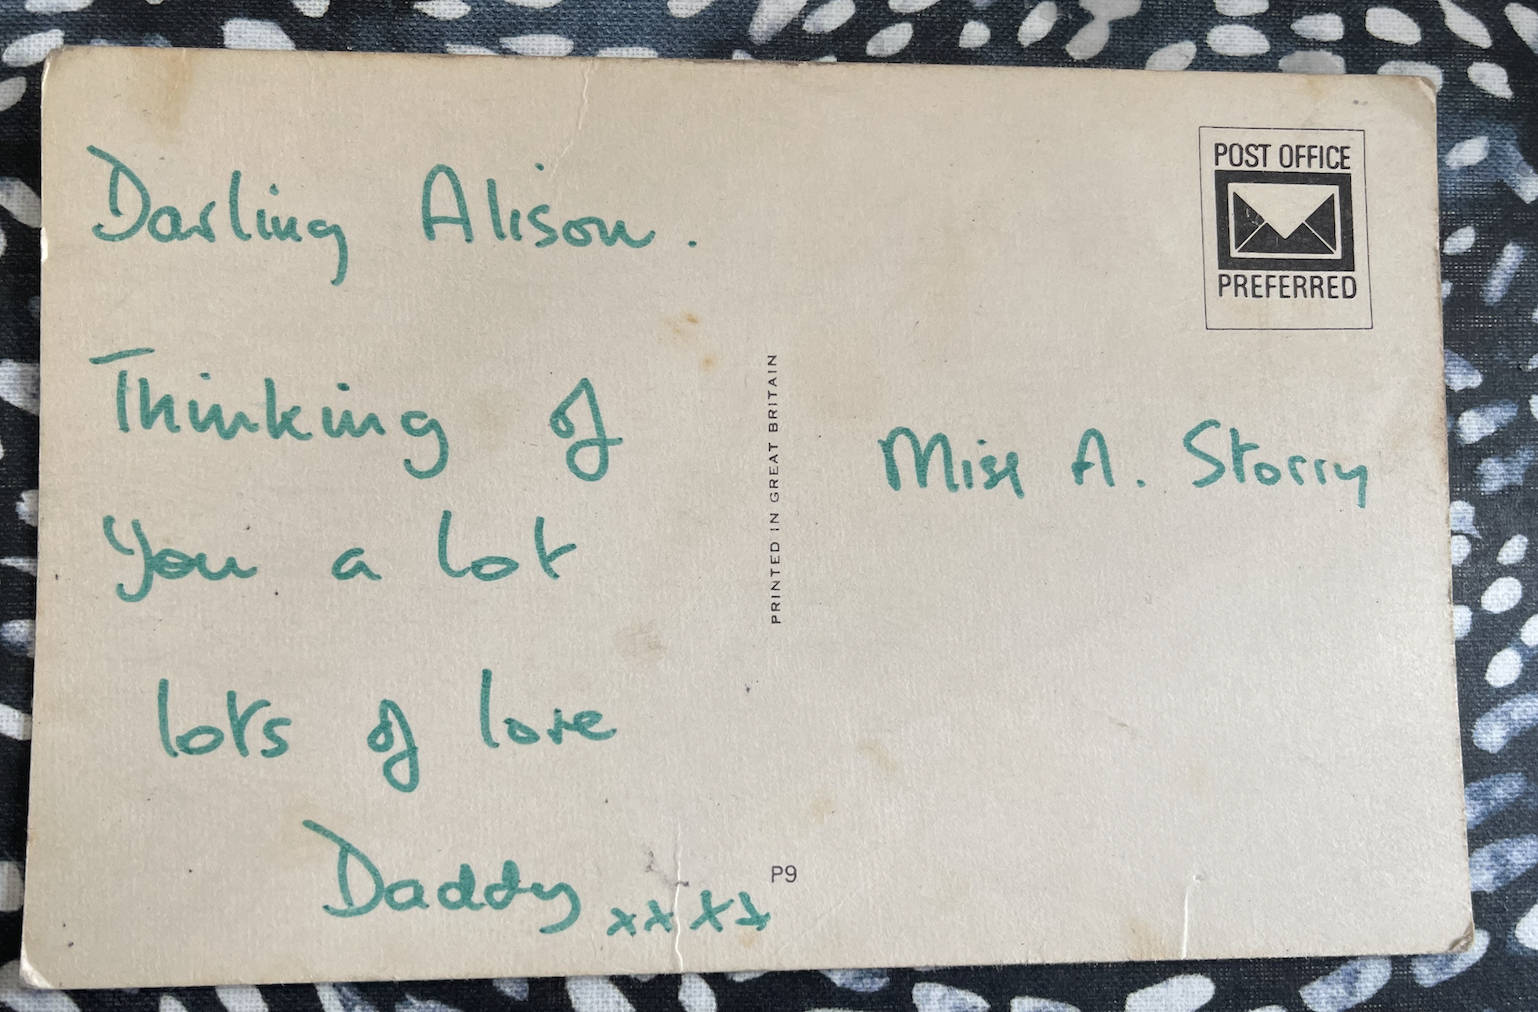 Darling Alison.
Thinking of
you a lot
lots of love
Daddy xxxx
POST OFFICE
PREFERRED
PRINTED IN GREAT BRITAIN
Miss A. Storry
P9